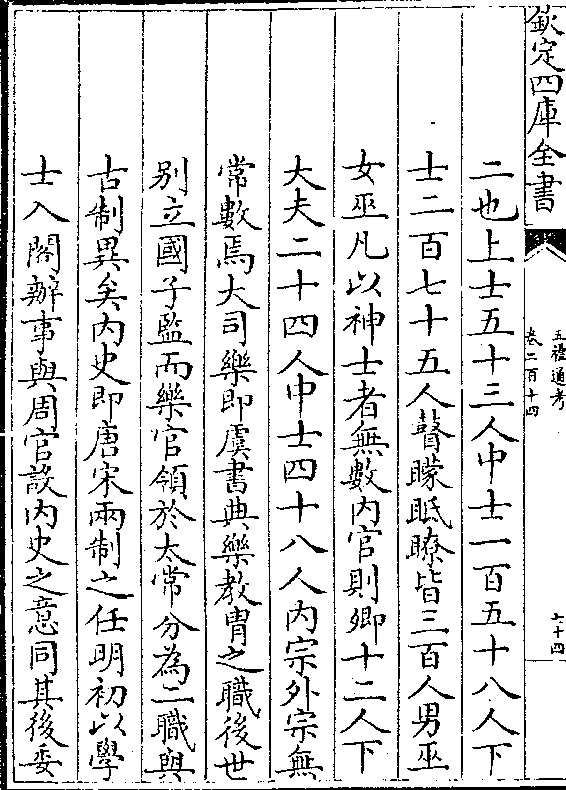 欽定四庫全書
五禮通考
卷二百十四
七十四
二也上士五十三人中士一百五十八人下
士二百七十五人瞽矇眡瞭皆三百人男巫
女巫凡以神士者無數內官則卿十二人下
大夫二十四人中士四十八人內宗外宗無
常數焉大司樂即虞書典樂教胄之職後世
別立國子監而樂官領於太常分為二職與
古制異矣內史即唐宋兩制之任明初以學
士入閣辦事與周官設內史之意同其後委